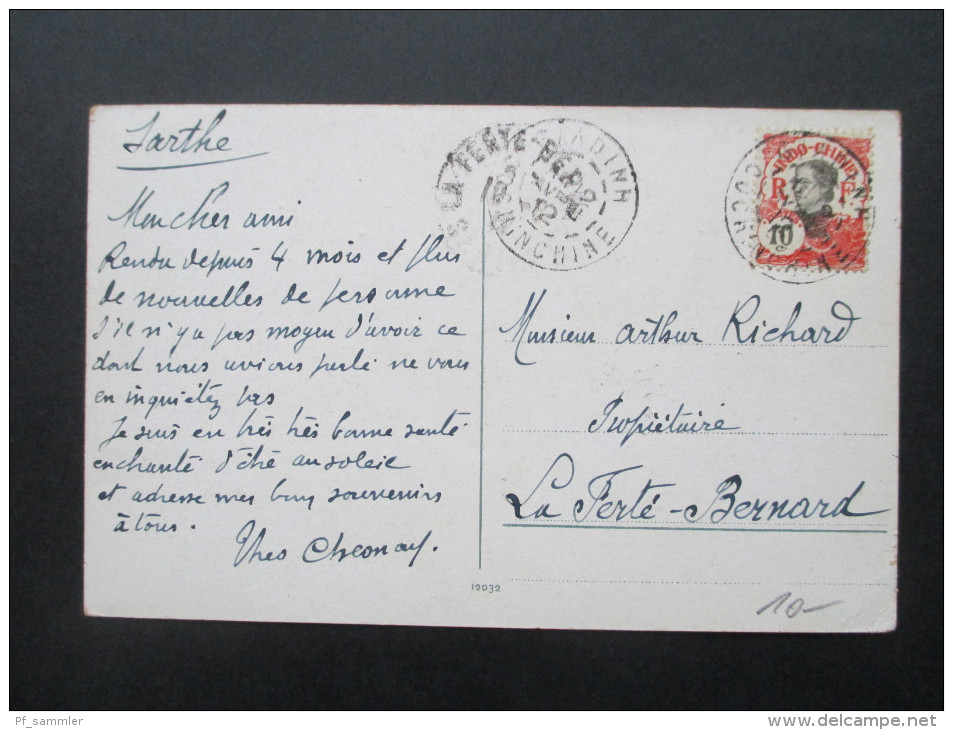 Sarthe
Mon cher ami
Rendu depuis 4 mois et plus
de nouvelles de personne
S'il n'y a pas moyen d'avoir ce
dont nous avions parlé ne vous
en inquiétez pas
Je suis en très très bonne santé
enchanté d'être au soleil
et adresse mes bons souvenirs
à tous.
Theo
LA FERTE-BER
GIADINH
AVRE
12
COCHINCHINE
INDO-CHINE
R F
10
c
Monsieur Arthur Richard
Propriétaire
La Ferté-Bernard
12032
10-
Pf_sammler
www.delcampe.net